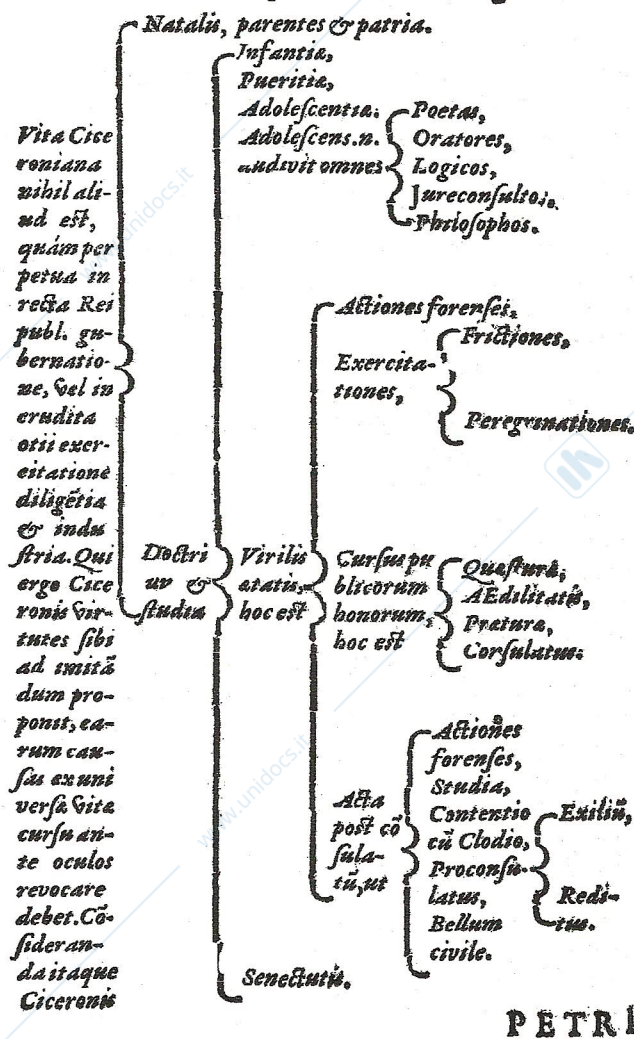 Vita Cice
roniana
nihil ali-
ud eſt,
quám per
petua in
recta Rei
publ. gu-
bernatio-
ne, vel in
erudita
otii exer-
citatione
diligẽtia
& indu
ſtria. Qui
ergo Cice
ronis vir-
tutes ſibi
ad imitã
dum pro-
ponit, ea-
rum cau-
ſas ex uni
verſa vita
curſu an-
te oculos
revocare
debet. Cõ-
ſideran-
da itaque
Ciceronis
Natalis, parentes & patria.
Doctri
&
ſtudia
Infantia,
Pueritia,
Adoleſcentia:
Adoleſcens.n.
audivit omnes
Poetas,
Oratores,
Logicos,
Jureconſultos,
Philoſophos.
Virilis
ætatis,
hoc eſt
Actiones forenſes,
Exercita-
tiones,
Frictiones,
Peregrinationes.
Curſus pu
blicorum
honorum,
hoc eſt
Quæſtura,
AEdilitatis,
Prætura,
Conſulatus:
Acta
poſt cõ
ſula-
tũ, ut
Actiones
forenſes,
Studia,
Contentio
cũ Clodio,
Proconſu-
latus,
Bellum
civile.
Exiliũ,
Redi-
tus.
Senectutis.
PETRI
www.unidocs.it
www.unidocs.it